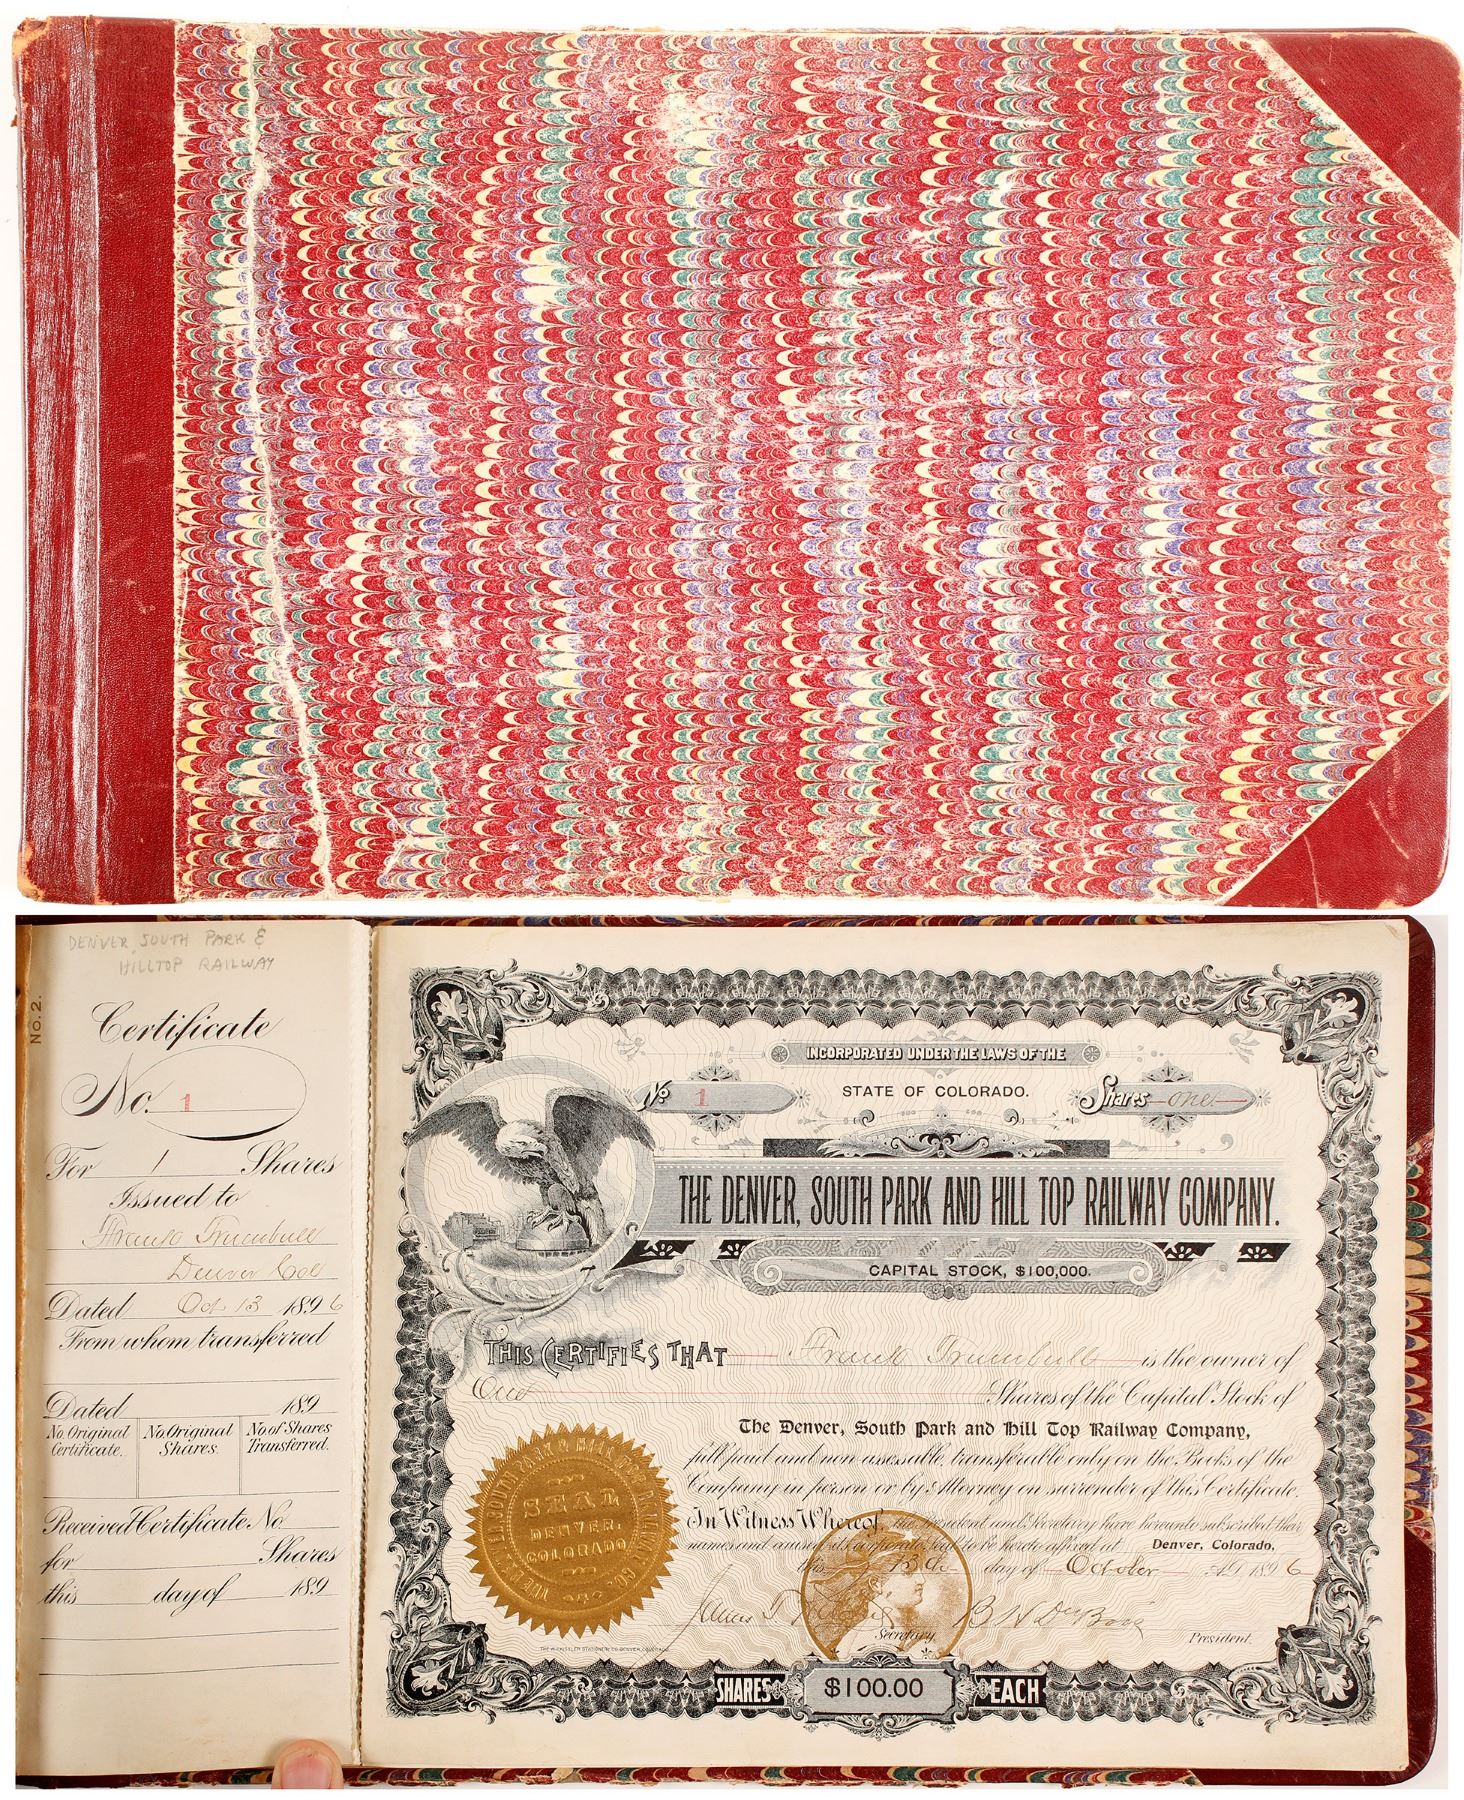 DENVER, SOUTH PARK &
HILLTOP RAILWAY
No. 2.
Certificate
No. 1
For 1 Shares
Issued to
Frank Trumbull
Denver Colo
Dated Oct 13 1896
From whom transferred
Dated 189
No. Original Certificate. No. Original Shares. No. of Shares Transferred.
Received Certificate No.
for Shares
this day of 189
INCORPORATED UNDER THE LAWS OF THE
No 1 STATE OF COLORADO. Shares one
THE DENVER, SOUTH PARK AND HILL TOP RAILWAY COMPANY.
CAPITAL STOCK, $100,000.
THIS CERTIFIES THAT Frank Trumbull is the owner of
One Shares of the Capital Stock of
The Denver, South Park and Hill Top Railway Company,
full paid and non-assessable, transferable only on the Books of the
Company in person or by Attorney on surrender of this Certificate.
In Witness Whereof, the President and Secretary have hereunto subscribed their
names and caused its Corporate Seal to be hereto affixed at Denver, Colorado,
this 13th day of October A.D. 1896
THE DENVER, SOUTH PARK & HILL TOP RAILWAY CO.
SEAL
DENVER,
COLORADO
James
Secretary.
B N Du Bois
President.
SHARES $100.00 EACH